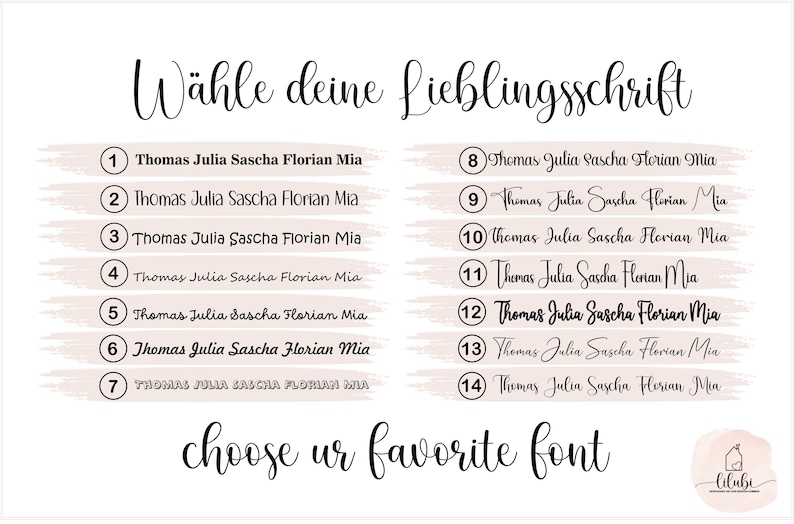 Wähle deine Lieblingsschrift
1 Thomas Julia Sascha Florian Mia
2 Thomas Julia Sascha Florian Mia
3 Thomas Julia Sascha Florian Mia
4 Thomas Julia Sascha Florian Mia
5 Thomas Julia Sascha Florian Mia
6 Thomas Julia Sascha Florian Mia
7 THOMAS JULIA SASCHA FLORIAN MIA
8 Thomas Julia Sascha Florian Mia
9 Thomas Julia Sascha Florian Mia
10 Thomas Julia Sascha Florian Mia
11 Thomas Julia Sascha Florian Mia
12 Thomas Julia Sascha Florian Mia
13 Thomas Julia Sascha Florian Mia
14 Thomas Julia Sascha Florian Mia
choose ur favorite font
lilubi